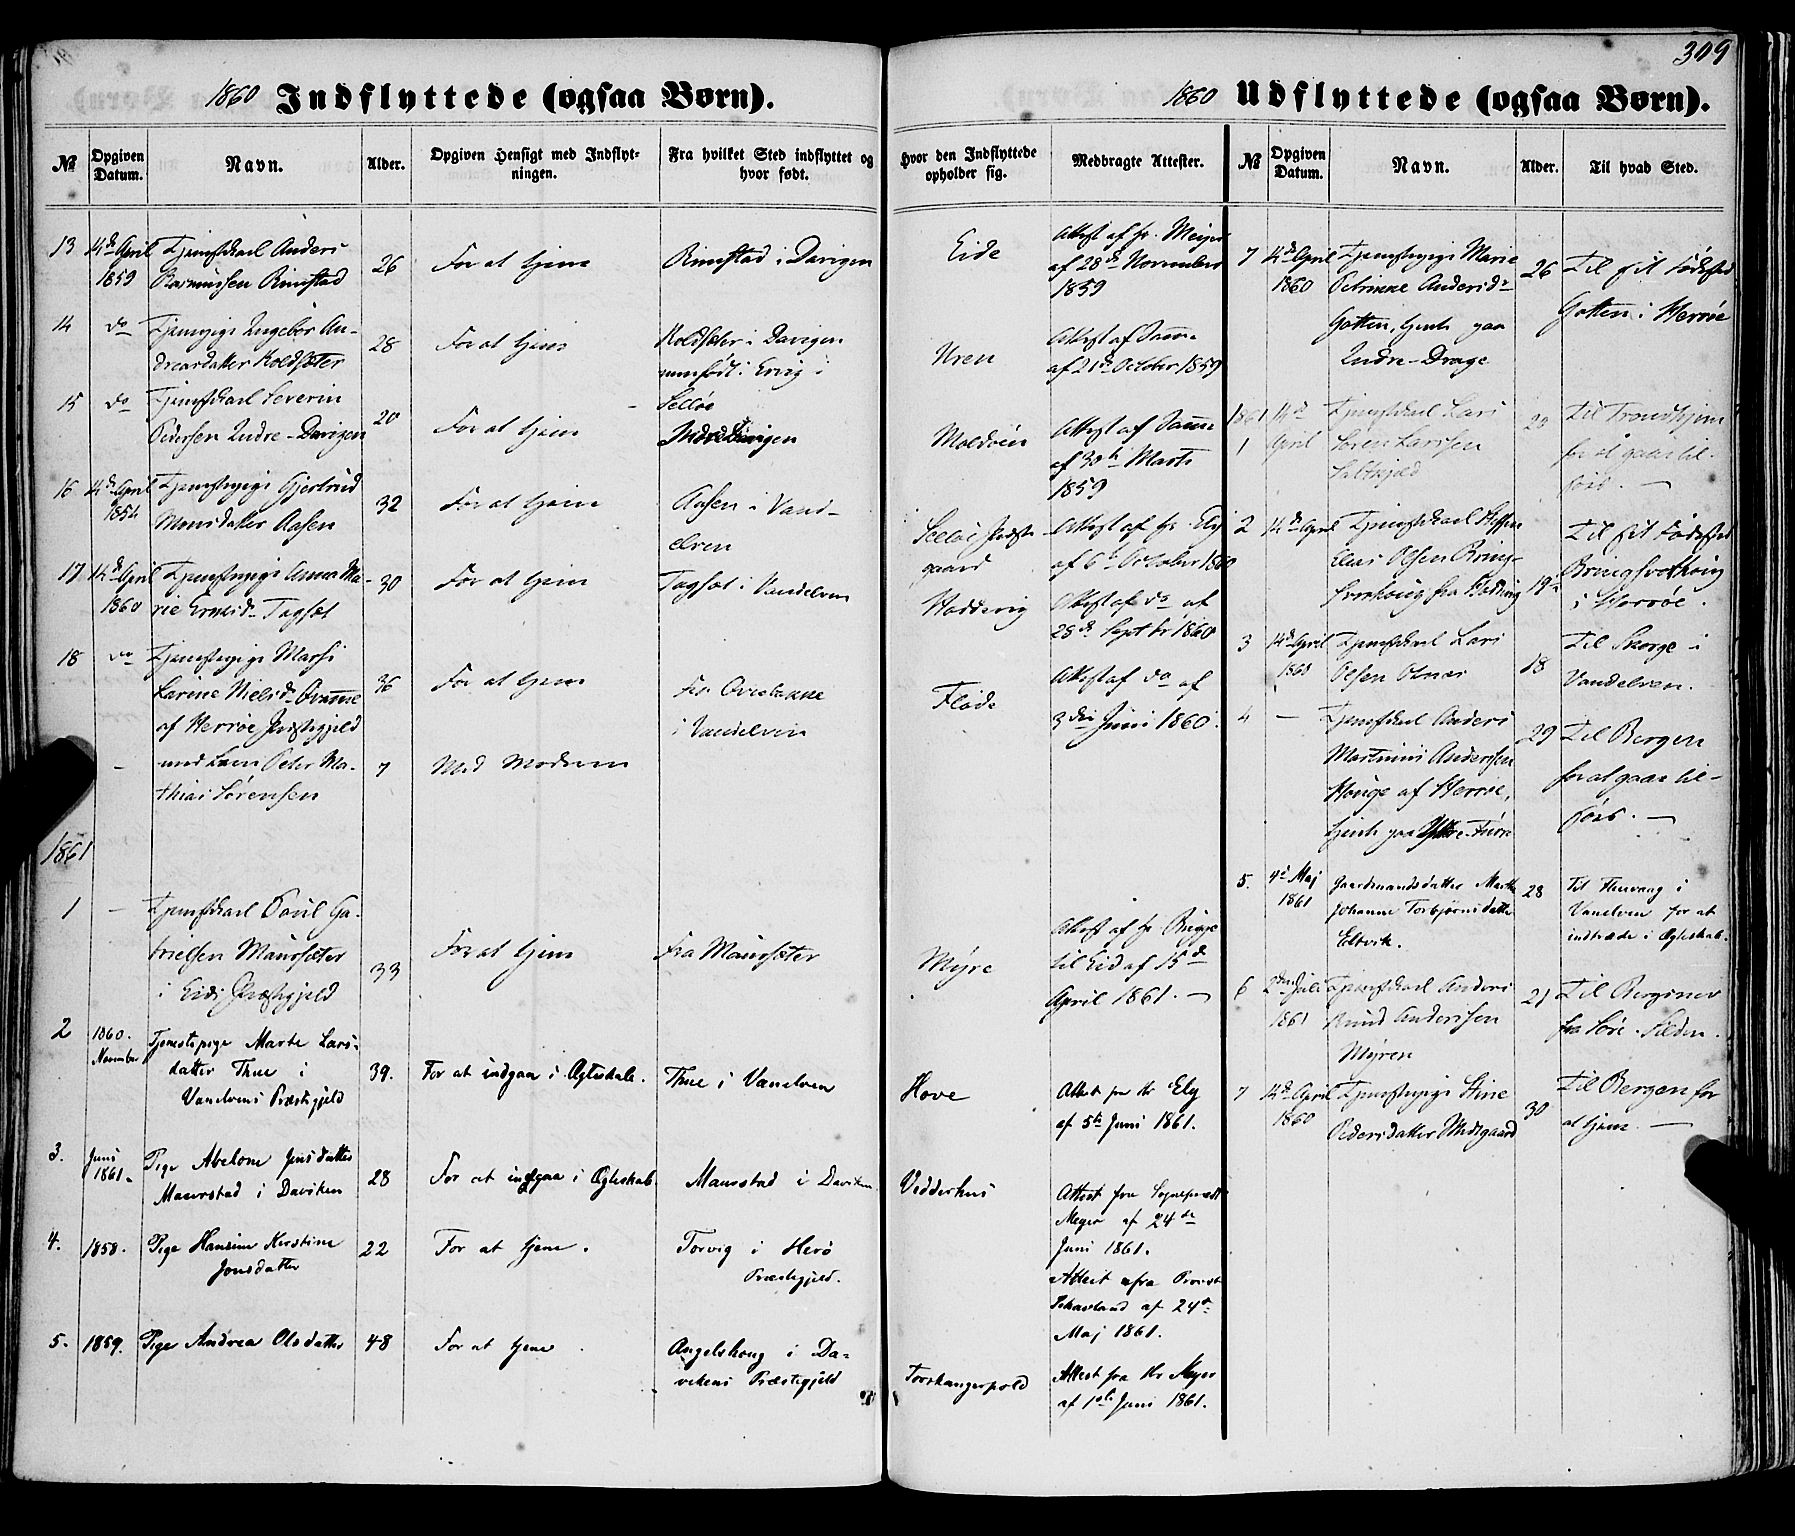 309
1860 Indflyttede (ogsaa Børn).
1860 Udflyttede (ogsaa Børn).
№ Opgiven Datum. Navn. Alder. Opgiven Hensigt med Indflytningen. Fra hvilket Sted indflyttet og hvor født. Hvor den Indflyttede opholder sig. Medbragte Attester.
№ Opgiven Datum. Navn. Alder. Til hvad Sted.
13 14de April Tjenestekarl Anders
1859 Rasmussen Rimstad 26 For at tjene Rimstad i Davigen Eide Attest af Hr. Meyer
af 28de November
1859
14 do Tjenpige Ingebor An-
dreasdatter Koldsæter 28 For at tjene Koldsæter i Davigen
men født i Ervig i
Selløe Uren Attest af Samme
af 21de October 1859
15 do Tjenestekarl Severin
Pedersen Indre-Davigen 20 For at tjene Indre Davigen Moldøen Attest af Samme
af 30te Marts
1859
16 14de April Tjenestepige Gjertrud
1854 Monsdatter Aasen 32 For at tjene Aasen i Vand-
elven Selløe Præste-
gaard Attest af Hr. Ely
af 6te October 1860
17 14de April Tjenestepige Anna Ma-
1860 rie Ernsd. Tagset 30 For at tjene Tagset i Vandelven Hoddevig Attest af do af
28de Septbr 1860
18 do Tjenestepige Marthe
Larine Nielsd.
af Herrøe Præstegjeld 36 For at tjene Fra
i Vandelven Flode Attest af do af
3die Juni 1860.
- med Søn Peter Ma-
thias Sørensen 7 Med Moderen
1861
1 - Tjenestekarl Poul Ga-
brielsen Maursæter
i Eids Præstegjeld 33 For at tjene Fra Maursæter Myre Attest af Hr Brigge
til Eid af 15de
April 1861. —
2 1860. November Tjenestepige Marte Lars-
datter Thue i
Vanelvens Præstegjeld 39. For at indgaa i Ægteskab. Thue i Vanelven Hove Attest fra Hr Ely
af 5te Juni 1861.
3. Juni 1861. Pige Abelone Jensdatter
Maurstad i Daviken 28 For at indgaa i Ægteskab Maurstad i Daviken Vedderhus Attest fra Sognepræst
Meyer af 24de
Juni 1861.
4. 1858. Pige Hansine Kirstine
Jonsdatter 22 For at tjene. Torvig i Herø
Præstegjeld. Attest fra Provst
af 24de
Maj 1861.
5. 1859. Pige Andrea Olsdatter 48 For at tjene. Angelshoug i Da-
vikens Præstegjeld Attest fra Hr Meyer
af 1ste Juni 1861.
7 14de April Tjenestepige Marie
1860 Petrikke Andersdr
Gotten, tjente paa
Indre-Drage 26 Til sit Fødested
Gotten i Herrøe
1861
1 14de April Tjenestekarl Lars
Søren Larssen
20 Til Trondhjem
for at gaae til-
søes. —
2 14de April Tjenestekarl Steffen
Elias Olsen
19 Til sit Fødested
i Herrøe.
3 14de April Tjenestekarl Lars
1860 Olsen Osnes 18 Til Skorge i
Vandelven.
4 — Tjenestekarl Anders
Martinus Anderssen
Houge af Herrøe,
tjente paa Yttre-Fure 29 Til Bergen
for at gaae til-
søes. —
5. 4de Maj Gaardmandsdatter Marthe
1861 Johanne Torbjørnsdatter
Eltvik. 28 Til i
Vanelven for at
indtræde i Ægteskab.
6 2den Juli Tjenestekarl Anders
1861 Knud Anderssen
Myren 21 Til
fra Søre-Silden.
7 14de April Tjenestepige Stine
1860 Pedersdatter Medgaard 30 Til Bergen for
at tjene. —